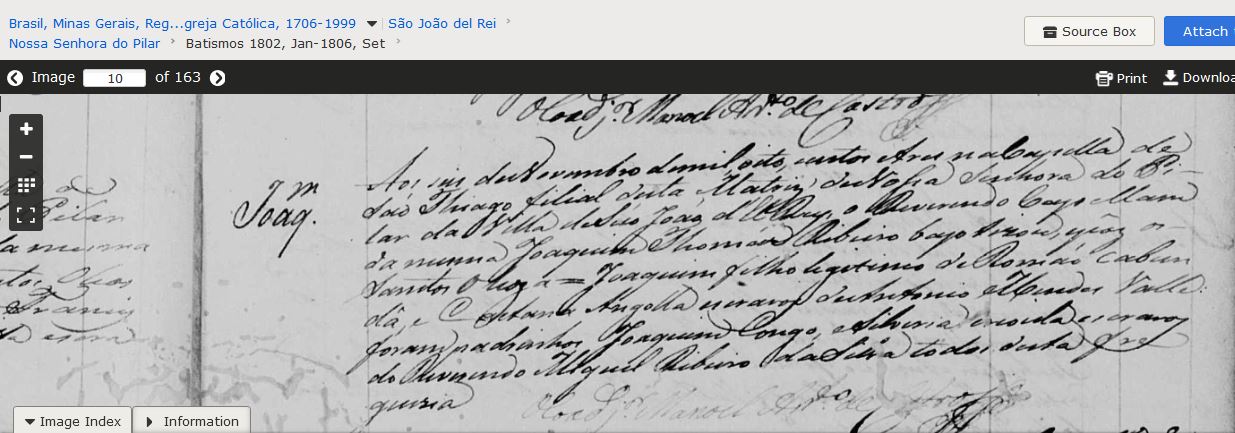 Brasil, Minas Gerais, Reg...greja Católica, 1706-1999 São João del Rei
Nossa Senhora do Pilar Batismos 1802, Jan-1806, Set
Source Box
Attach
Image 10 of 163
Print
Downloa
O Coadj.r Manoel An.to de Castro
Joaq.m
Aos seis de Novembro de mil, oito centos e tres na Capella de
São Thiago filial desta Matriz de Nossa Senhora do Pi-
lar da Villa de São João d'ElRey, o Reverendo Cappellam
da mesma Joaquim Thomás Ribeiro baptizou, e pôs os
Santos Oleos a = Joaquim filho legitimo de Romão Cabun
dá, e Caetana Angolla escravos de Antonio Mendes Valle
foram padrinhos Joaquim Congo, e Silveria crioula escravos
do Reverendo Miguel Ribeiro da Silva todos desta fre
guezia
O Coadj.r Manoel An.to de Castro
de
Pilar
da mesma
Oleos
Image Index
Information